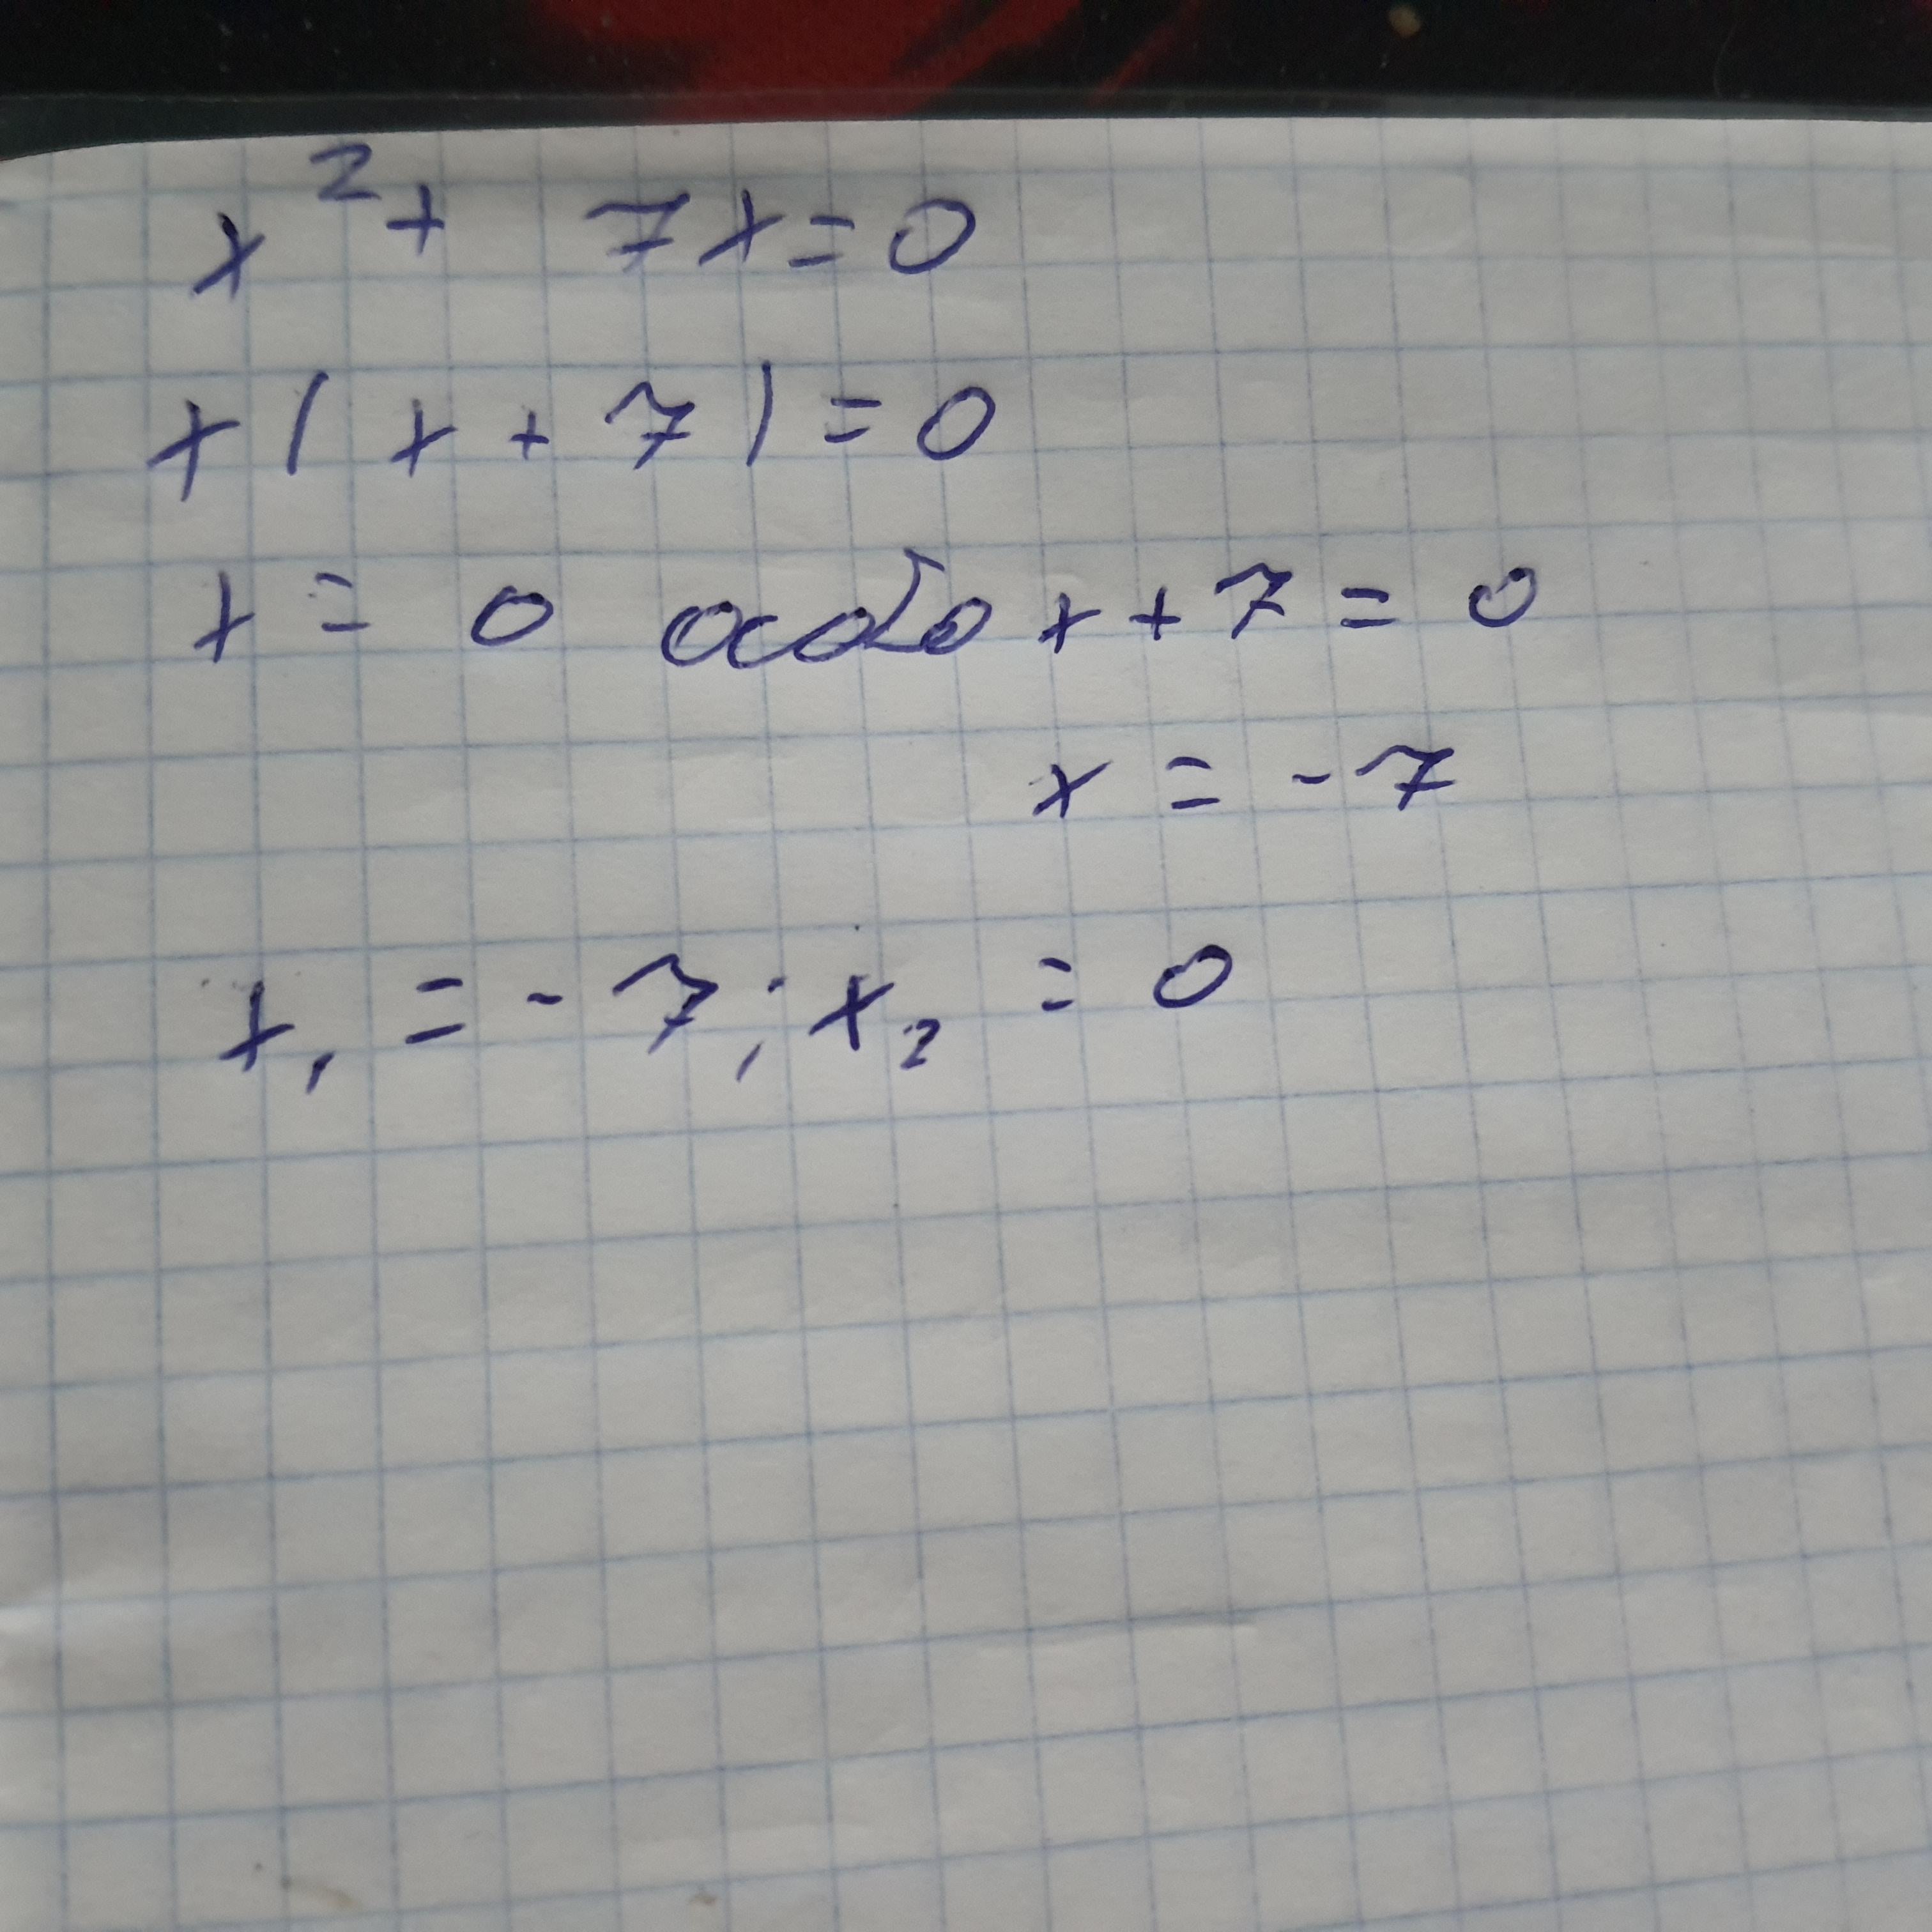 x² + 7x = 0
x(x + 7) = 0
x = 0 або x + 7 = 0
x = -7
x₁ = -7; x₂ = 0